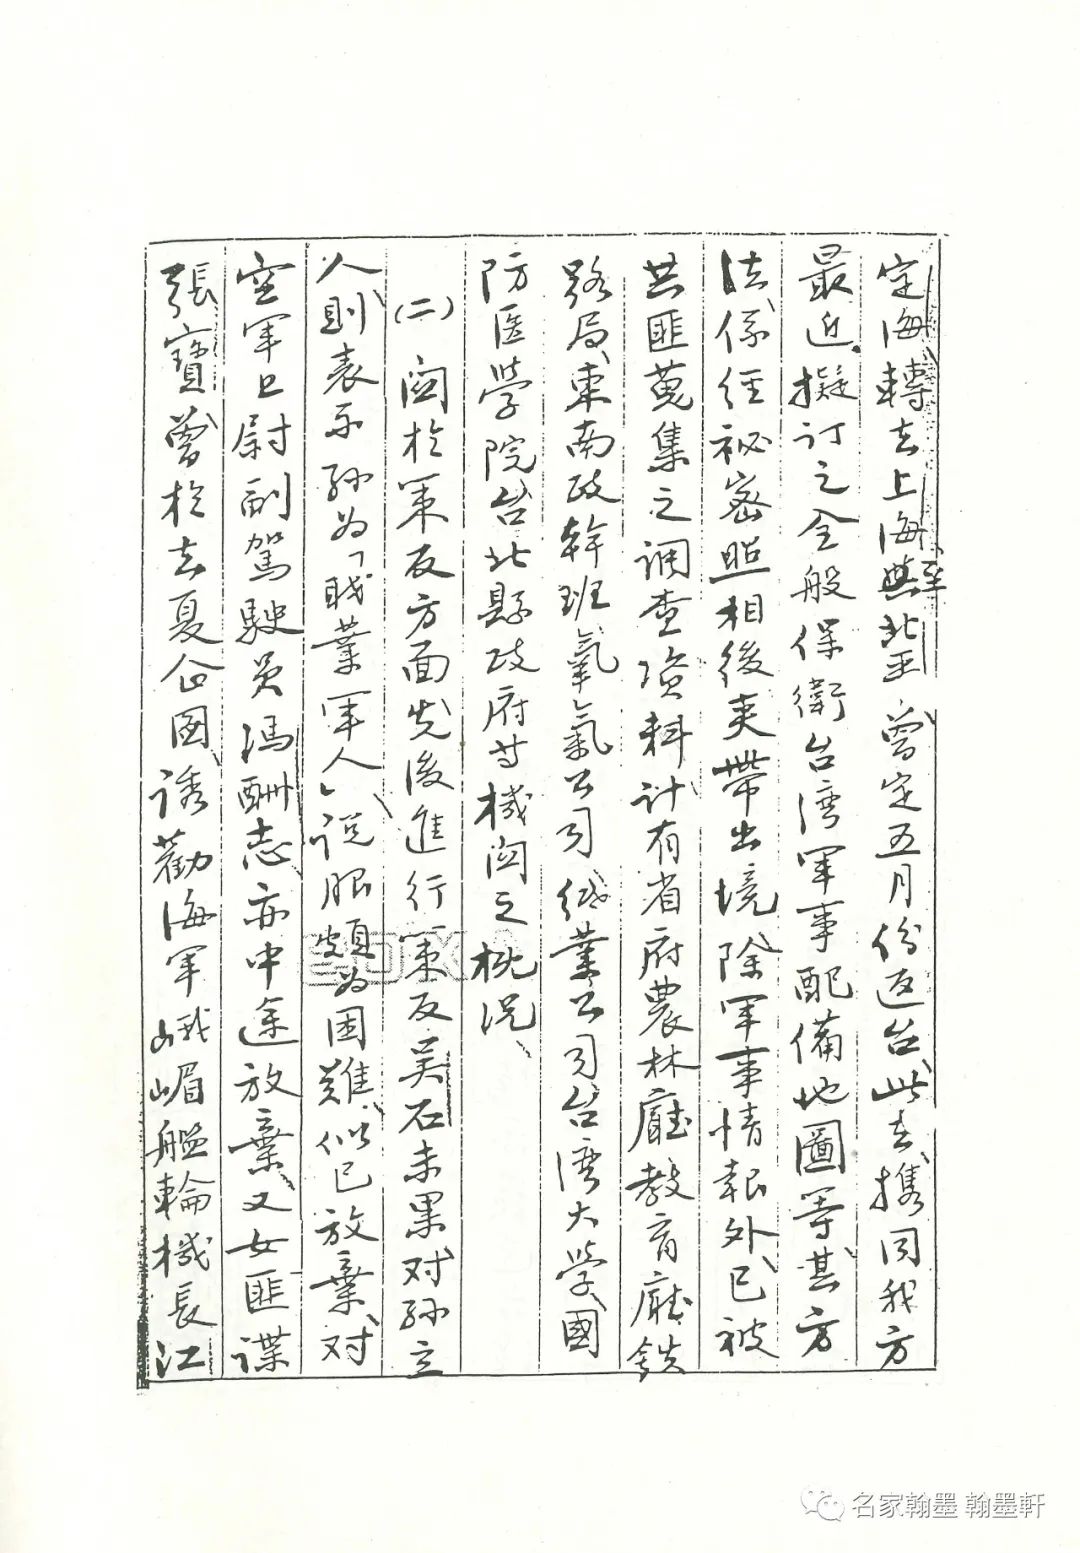 定海轉去上海與北至曾定五月份返台此去携同我方
至
最近擬訂之全般保衛台湾軍事配備地圖等其方
法係経祕密照相後夾帶出境除軍事情報外已被
共匪蒐集之調查資料計有省府農林廳教育廳鉄
路局東南政幹班氧氣公司紙業公司台湾大学國
防医学院台北縣政府等機関之概况
(二)関於策反方面先後進行策反吴石未果对孫立
人則表示孫為「職業軍人」説服頗為困難似已放棄对
空軍上尉副駕駛員馮酬志亦中途放棄又女匪諜
張寶曾於去夏企圖誘勸海軍峨嵋艦輪機長江
名家翰墨 翰墨軒